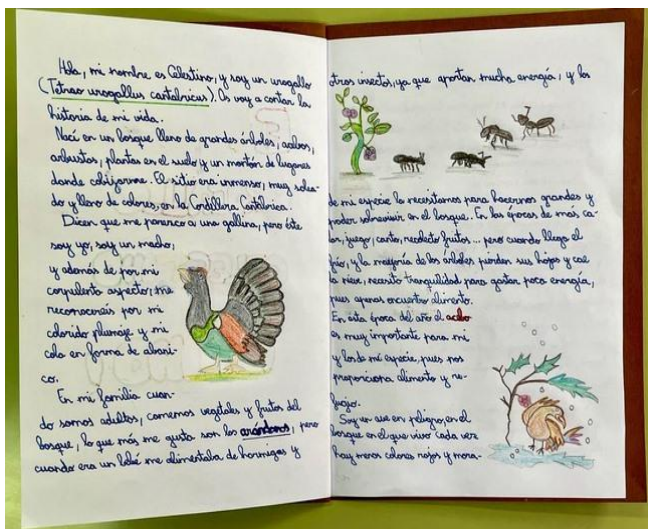 Hola, mi nombre es Celestino, y soy un urogallo
(Tetrao urogallus cantabricus). Os voy a contar la
historia de mi vida.
Nací en un bosque lleno de grandes árboles, acebos,
arbustos, plantas en el suelo y un montón de lugares
donde cobijarme. El sitio era inmenso, muy solea-
do y lleno de colores, en la Cordillera Cantábrica.
Dicen que me parezco a una gallina, pero éste
soy yo, soy un macho,
y además de por mi
corpulento aspecto, me
reconoceréis por mi
colorido plumaje y mi
cola en forma de abani-
co.
En mi familia cuan-
do somos adultos, comemos vegetales y frutos del
bosque, lo que más me gusta son los arándanos, pero
cuando era un bebé me alimentaba de hormigas y
otros insectos, ya que aportan mucha energía, y los
de mi especie la necesitamos para hacernos grandes y
poder sobrevivir en el bosque. En las épocas de más ca-
lor, juego, canto, recolecto frutos... pero cuando llega el
frío, y la mayoría de los árboles pierden sus hojas y cae
la nieve, necesito tranquilidad para gastar poca energía,
pues apenas encuentro alimento.
En esta época del año el acebo
es muy importante para mi
y los de mi especie, pues nos
proporciona alimento y re-
fugio.
Soy un ave en peligro, en el
bosque en el que vivo cada vez
hay menos colores rojos y mora-